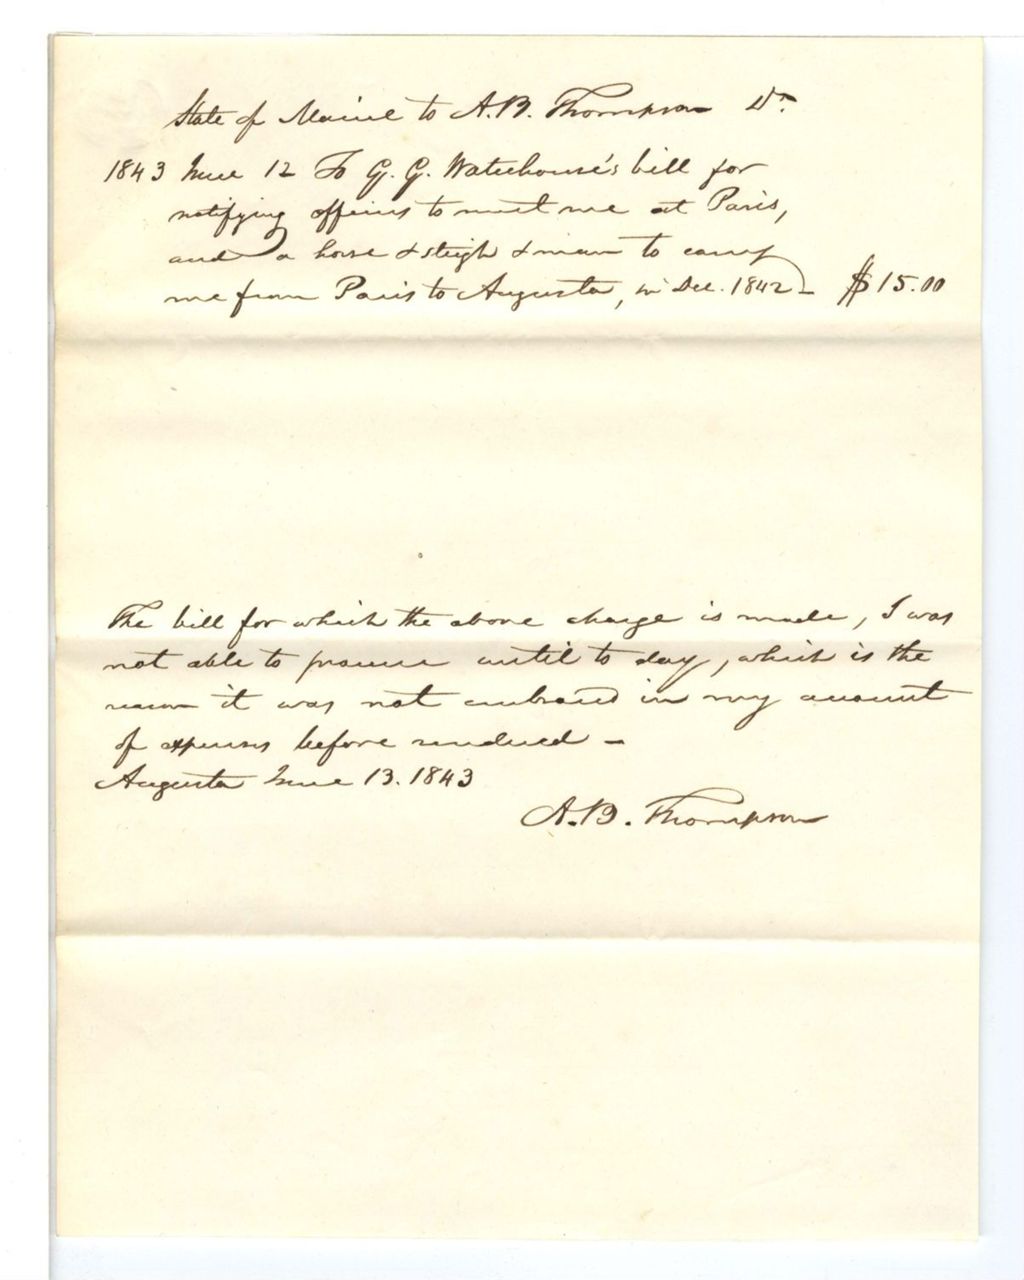 State of Maine to A.B. Thompson Dr
1843 June 12 To G. G. Waterhouse's bill for
notifying officers to meet me at Paris,
and a horse & sleigh & man to carry
me from Paris to Augusta, in Dec. 1842 - $15.00
The bill for which the above charge is made, I was
not able to procure until to day, which is the
reason it was not embraced in my account
of expenses before rendered -
Augusta June 13. 1843
A.B. Thompson